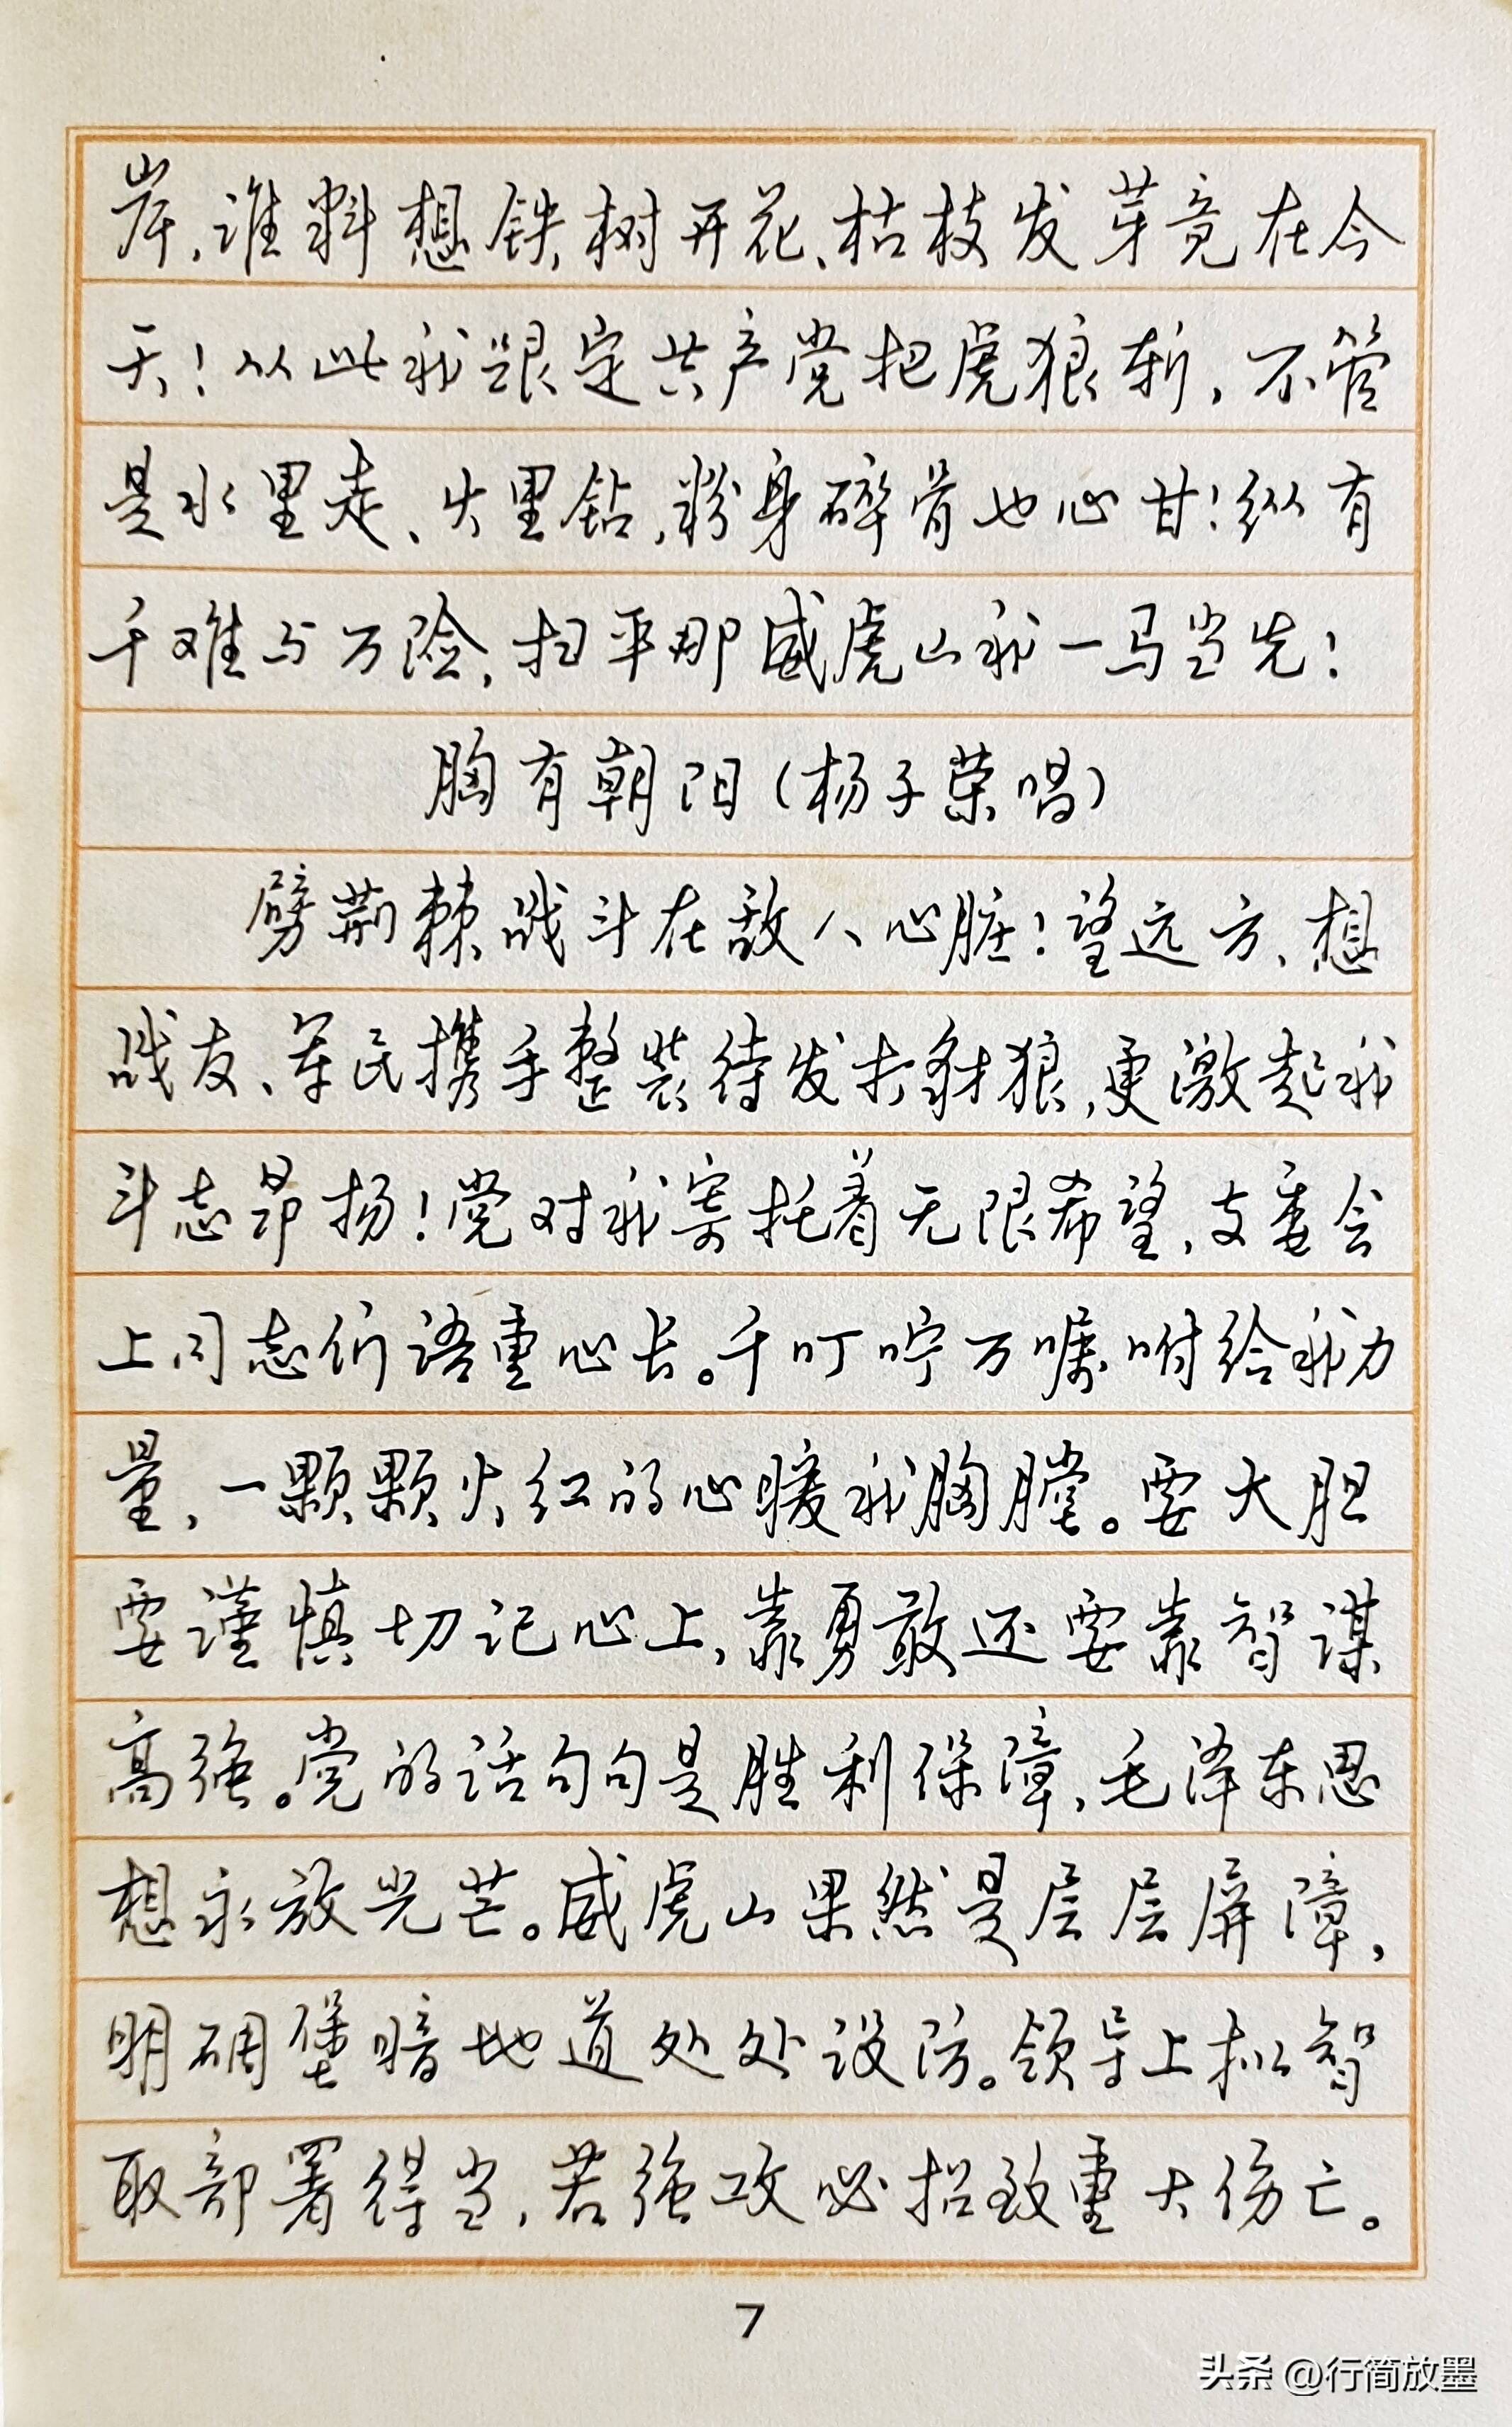 岸，谁料想铁树开花、枯枝发芽竟在今
天！从此我跟定共产党把虎狼斩，不管
是水里走、火里钻，粉身碎骨也心甘！纵有
千难与万险，扫平那威虎山我一马当先！
胸有朝阳（杨子荣唱）
劈荆棘战斗在敌人心脏！望远方、想
战友、军民携手整装待发打豺狼，更激起我
斗志昂扬！党对我寄托着无限希望，支委会
上同志们语重心长。千叮咛万嘱咐给我力
量，一颗颗火红的心暖我胸膛。要大胆
要谨慎切记心上，靠勇敢还要靠智谋
高强。党的话句句是胜利保障，毛泽东思
想永放光芒。威虎山果然是层层屏障，
明碉堡暗地道处处设防。领导上拟智
取部署得当，若强攻必招致重大伤亡。
7
头条 @行简放墨